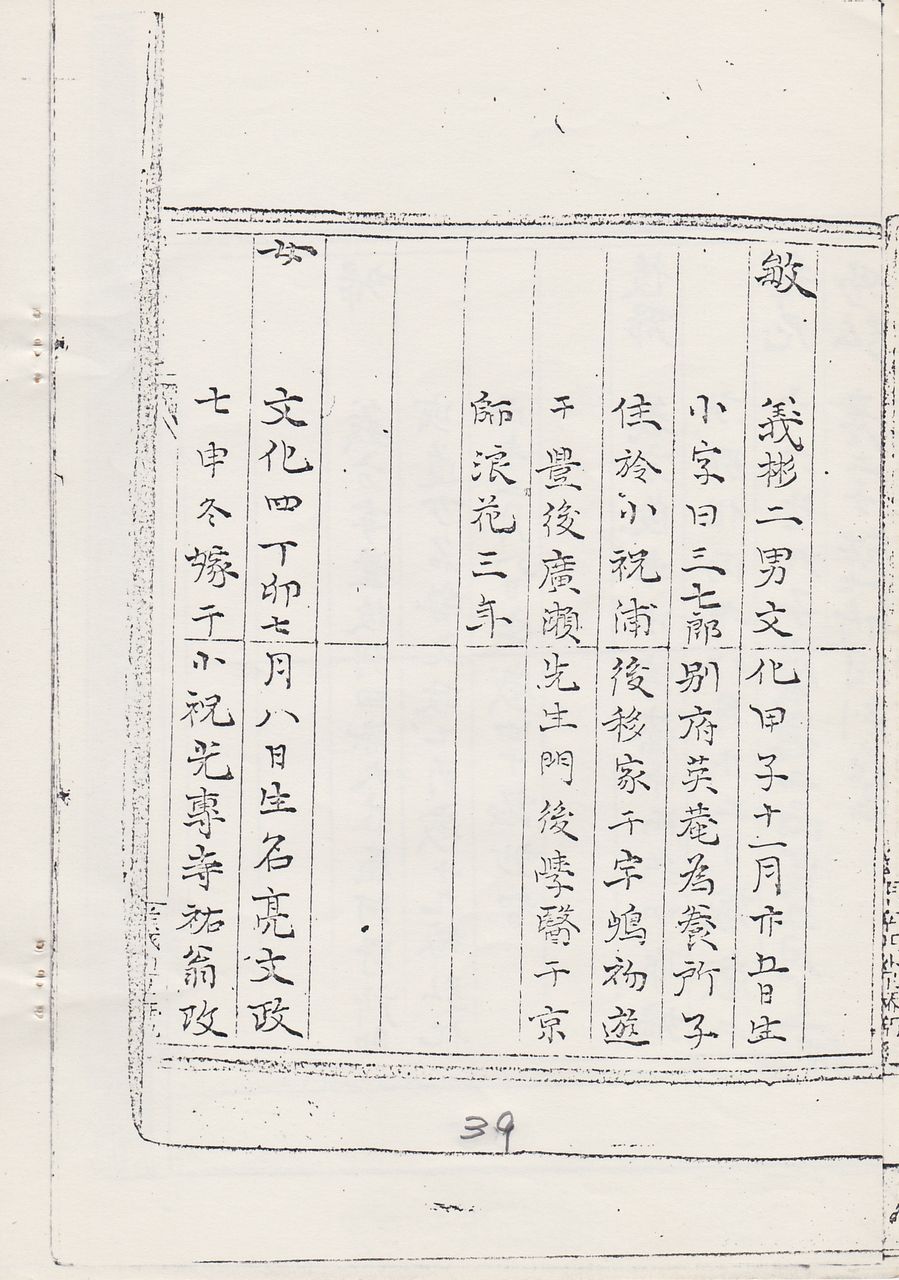 敏
義彬二男文化甲子十一月廿五日生
小字曰三七郎別府英菴為養所子
住於小祝浦後移家于宇嶋初遊
于豊後廣瀬先生門後學醫于京
師浪花三年
女
文化四丁卯七月八日生名亮文政
七申冬嫁于小祝光專寺祐翁改
39